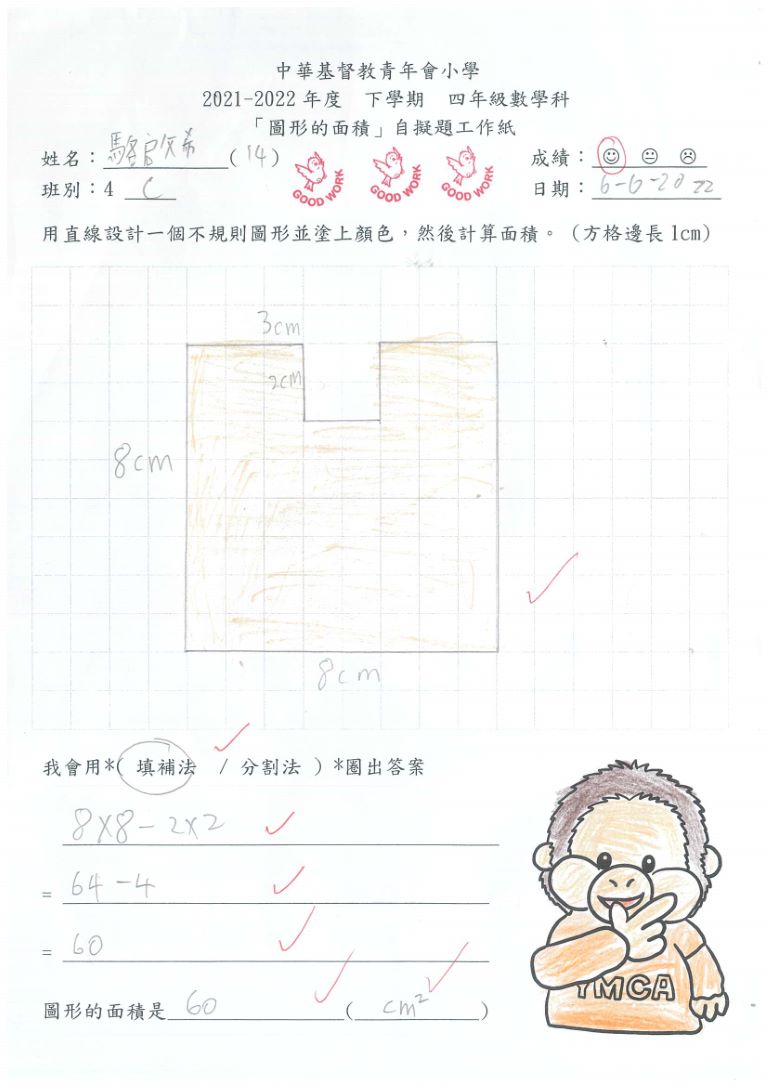 中華基督教青年會小學
2021-2022 年度 下學期 四年級數學科
「圖形的面積」自擬題工作紙
姓名： (14) 成績：
GOOD WORK GOOD WORK GOOD WORK
班別：4 C 日期：6-6-2022
用直線設計一個不規則圖形並塗上顏色，然後計算面積。(方格邊長1cm)
3cm
2cm
8cm
8cm
我會用*( 填補法 / 分割法 ) *圈出答案
8×8-2×2
= 64-4
= 60
圖形的面積是 60 ( cm² )
YMCA